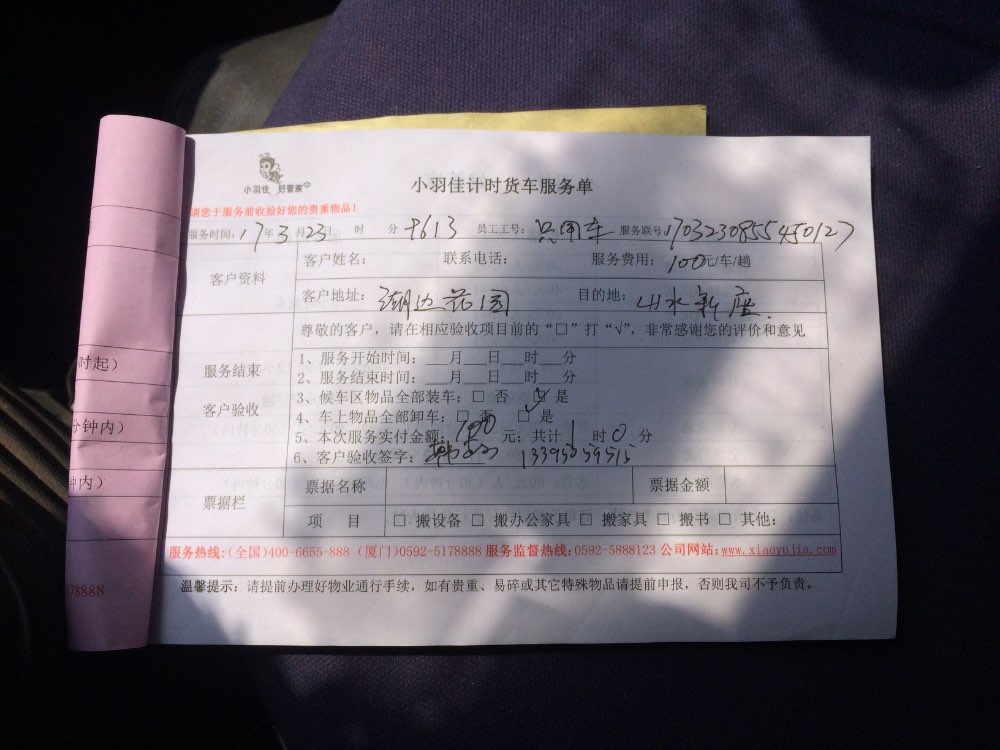 小羽佳 好管家
小羽佳计时货车服务单
请您于服务前收拾好您的贵重物品!
服务时间: 17年3月23日 时 分 9613 员工工号: 只用车 服务联号: 170323085545012​7
客户资料
客户姓名: 联系电话: 服务费用: 100元/车/趟
客户地址: 湖边花园 目的地: 山水新座
尊敬的客户,请在相应验收项目前的“□”打“√”,非常感谢您的评价和意见
服务结束
客户验收
1、服务开始时间:___月___日___时___分
2、服务结束时间:___月___日___时___分
3、候车区物品全部装车:□ 否 □ 是
4、车上物品全部卸车:□ 否 □ 是
5、本次服务实付金额: 100 元;共计 1 时 0 分
6、客户验收签字:
票据栏
票据名称 票据金额
项 目 □ 搬设备 □ 搬办公家具 □ 搬家具 □ 搬书 □ 其他:
服务热线:(全国)400-6655-888 (厦门)0592-5178888 服务监督热线:0592-5888123 公司网站:www.xiaoyujia.com
温馨提示:请提前办理好物业通行手续,如有贵重、易碎或其它特殊物品请提前申报,否则我司不予负责。
时起)
分钟内)
钟内)
78888